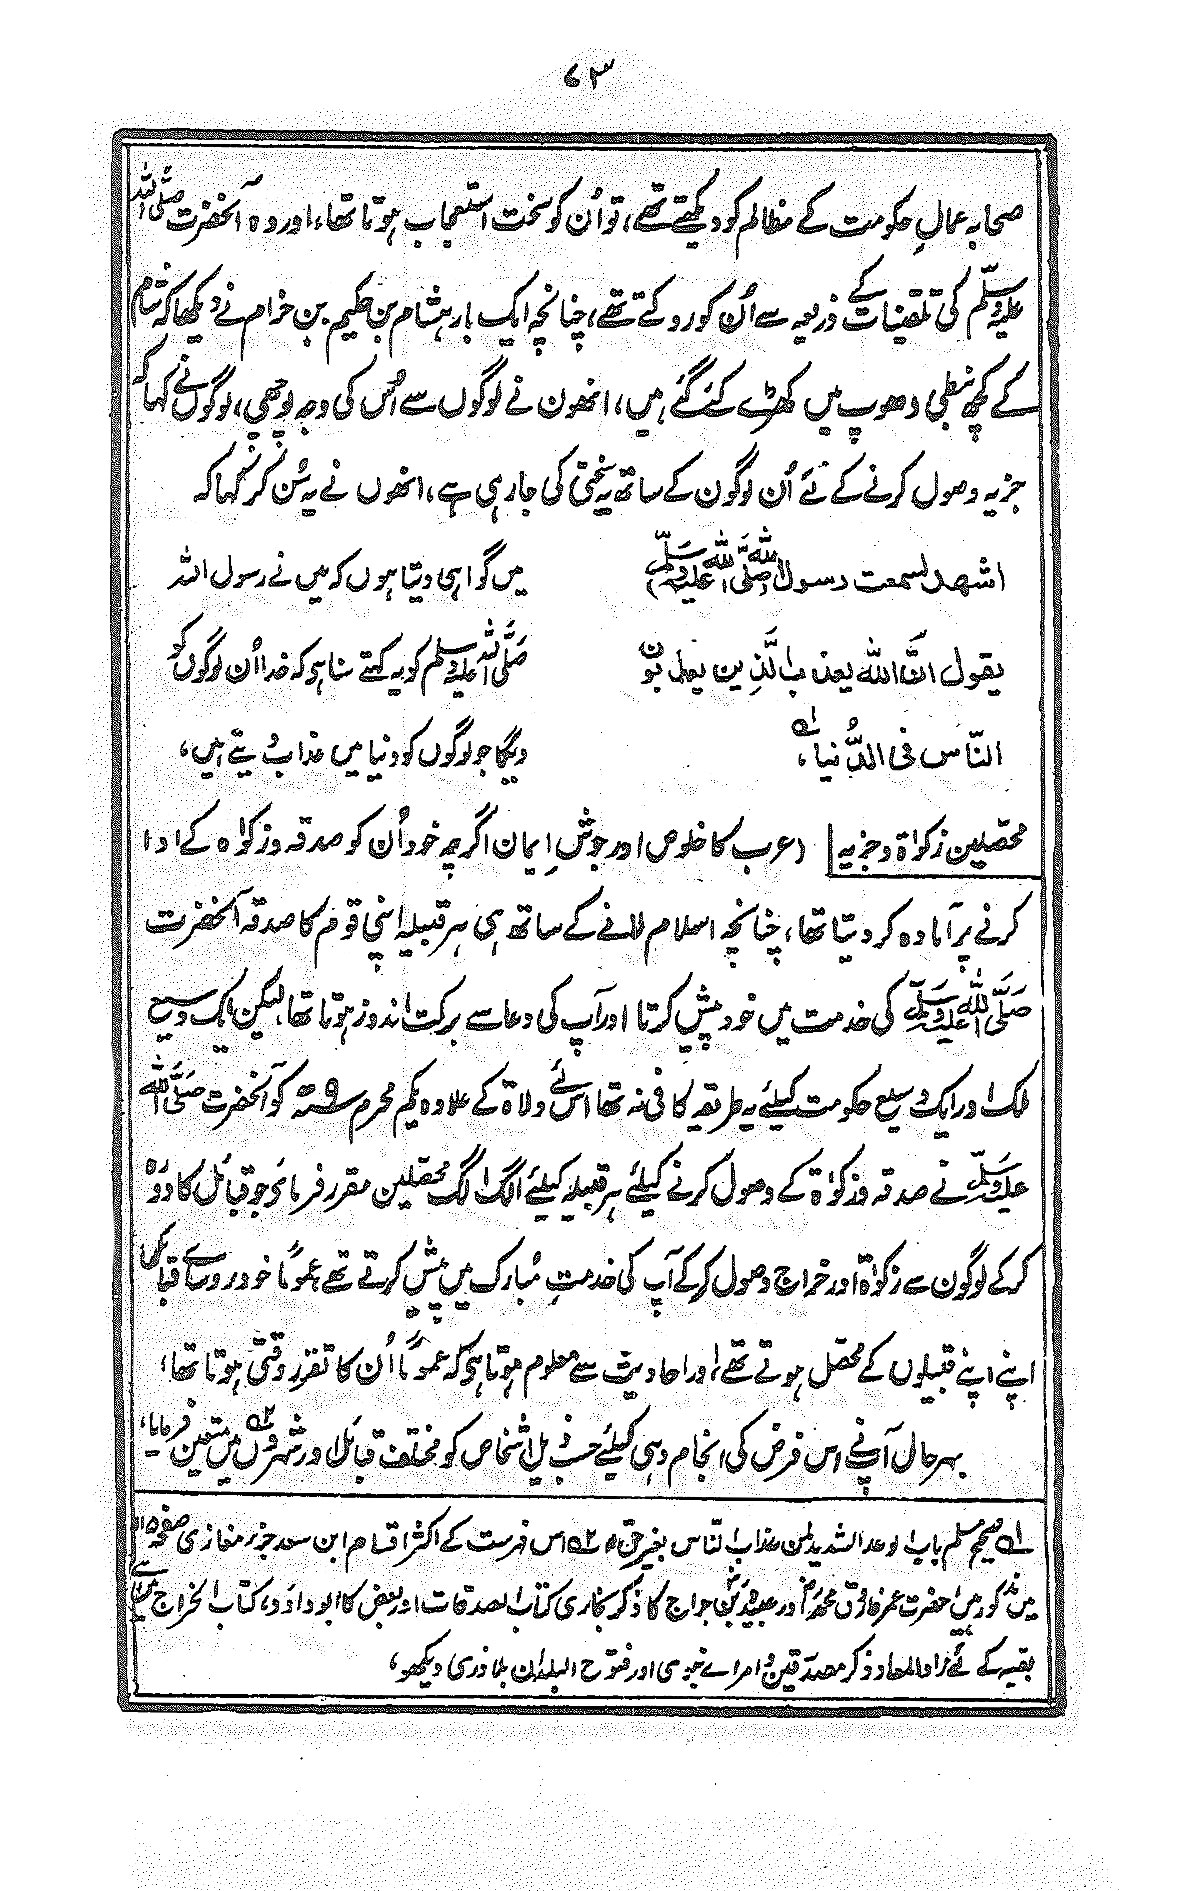 ۷۳
صحابہ عمالِ حکومت کے مظالم کو دیکھتے تھے، تو اُن کو سخت استعجاب ہوتا تھا، اور وہ آنحضرت صلی اللہ
علیہ وسلم کی تلقینات کے ذریعہ سے اُن کو روکتے تھے، چنانچہ ایک بار ہشام بن حکیم بن حزام نے دیکھا کہ شام
کے کچھ نبطی دھوپ میں کھڑے کئے گئے ہیں، انھون نے لوگوں سے اُس کی وجہ پوچھی، لوگوں نے کہا کہ
جزیہ وصول کرنے کے لئے اُن لوگون کے ساتھ یہ سختی کی جا رہی ہے، انھوں نے یہ سُن کر کہا کہ
اشهد لسمعت رسول الله (صلی اللہ علیہ وسلم) میں گواہی دیتا ہوں کہ میں نے رسول اللہ
یقول انّ الله یعذب الّذین یعذبون صلی اللہ علیہ وسلم کو یہ کہتے سنا ہی کہ خدا اُن لوگوں کو
النّاس فی الدُّنیا، ۱؎ دیگا جو لوگوں کو دنیا میں عذاب دیتے ہیں،
محصلین زکوٰۃ و جزیہ (عرب کا خلوص اور جوشِ ایمان اگرچہ خود اُن کو صدقہ و زکوٰۃ کے ادا
کرنے پر آمادہ کر دیتا تھا، چنانچہ اسلام لانے کے ساتھ ہی ہر قبیلہ اپنی قوم کا صدقہ آنحضرت
صلی اللہ علیہ وسلم کی خدمت میں خود پیش کرتا اور آپ کی دعا سے برکت اندوز ہوتا تھا، لیکن ایک وسیع
ملک اور ایک وسیع حکومت کیلئے یہ طریقہ کافی نہ تھا اس لئے ولاۃ کے علاوہ یکم محرم ۹ھ کو آنحضرت صلی اللہ
علیہ وسلم نے صدقہ و زکوٰۃ کے وصول کرنے کیلئے ہر قبیلہ کیلئے الگ الگ محصلین مقرر فرمائے جو قبائل کا دورہ
کرکے لوگون سے زکوٰۃ اور خراج وصول کرکے آپ کی خدمتِ مبارک میں پیش کرتے تھے، عموماً خود روساے قبائل
اپنے اپنے قبیلوں کے محصل ہوتے تھے، اور احادیث سے معلوم ہوتا ہی کہ عموماً اُن کا تقرر وقتی ہوتا تھا،
بہرحال آپنے اس فرض کی انجام دہی کیلئے حسب ذیل اشخاص کو مختلف قبائل اور شہروں ۲؎ میں متعین فرمایا،
۱؎ صحیح مسلم باب الوعد الشدید لمن عذاب الناس بغیر حق، ۲؎ اس فرست کے اکثر اقسام ابن سعد جزر مغازی صفحہ
میں مذکور ہیں، حضرت عمر فاروق و ابو عبیدہ بن جراح کا ذکر بخاری کتاب الصدقات اور بعض کا ابو داؤد، کتاب الخراج میں ہے
بقیہ کے لئے زاد المعاد ذکر مصدقین و امراے نبوی اور فتوح البلدان بلاذری دیکھو،